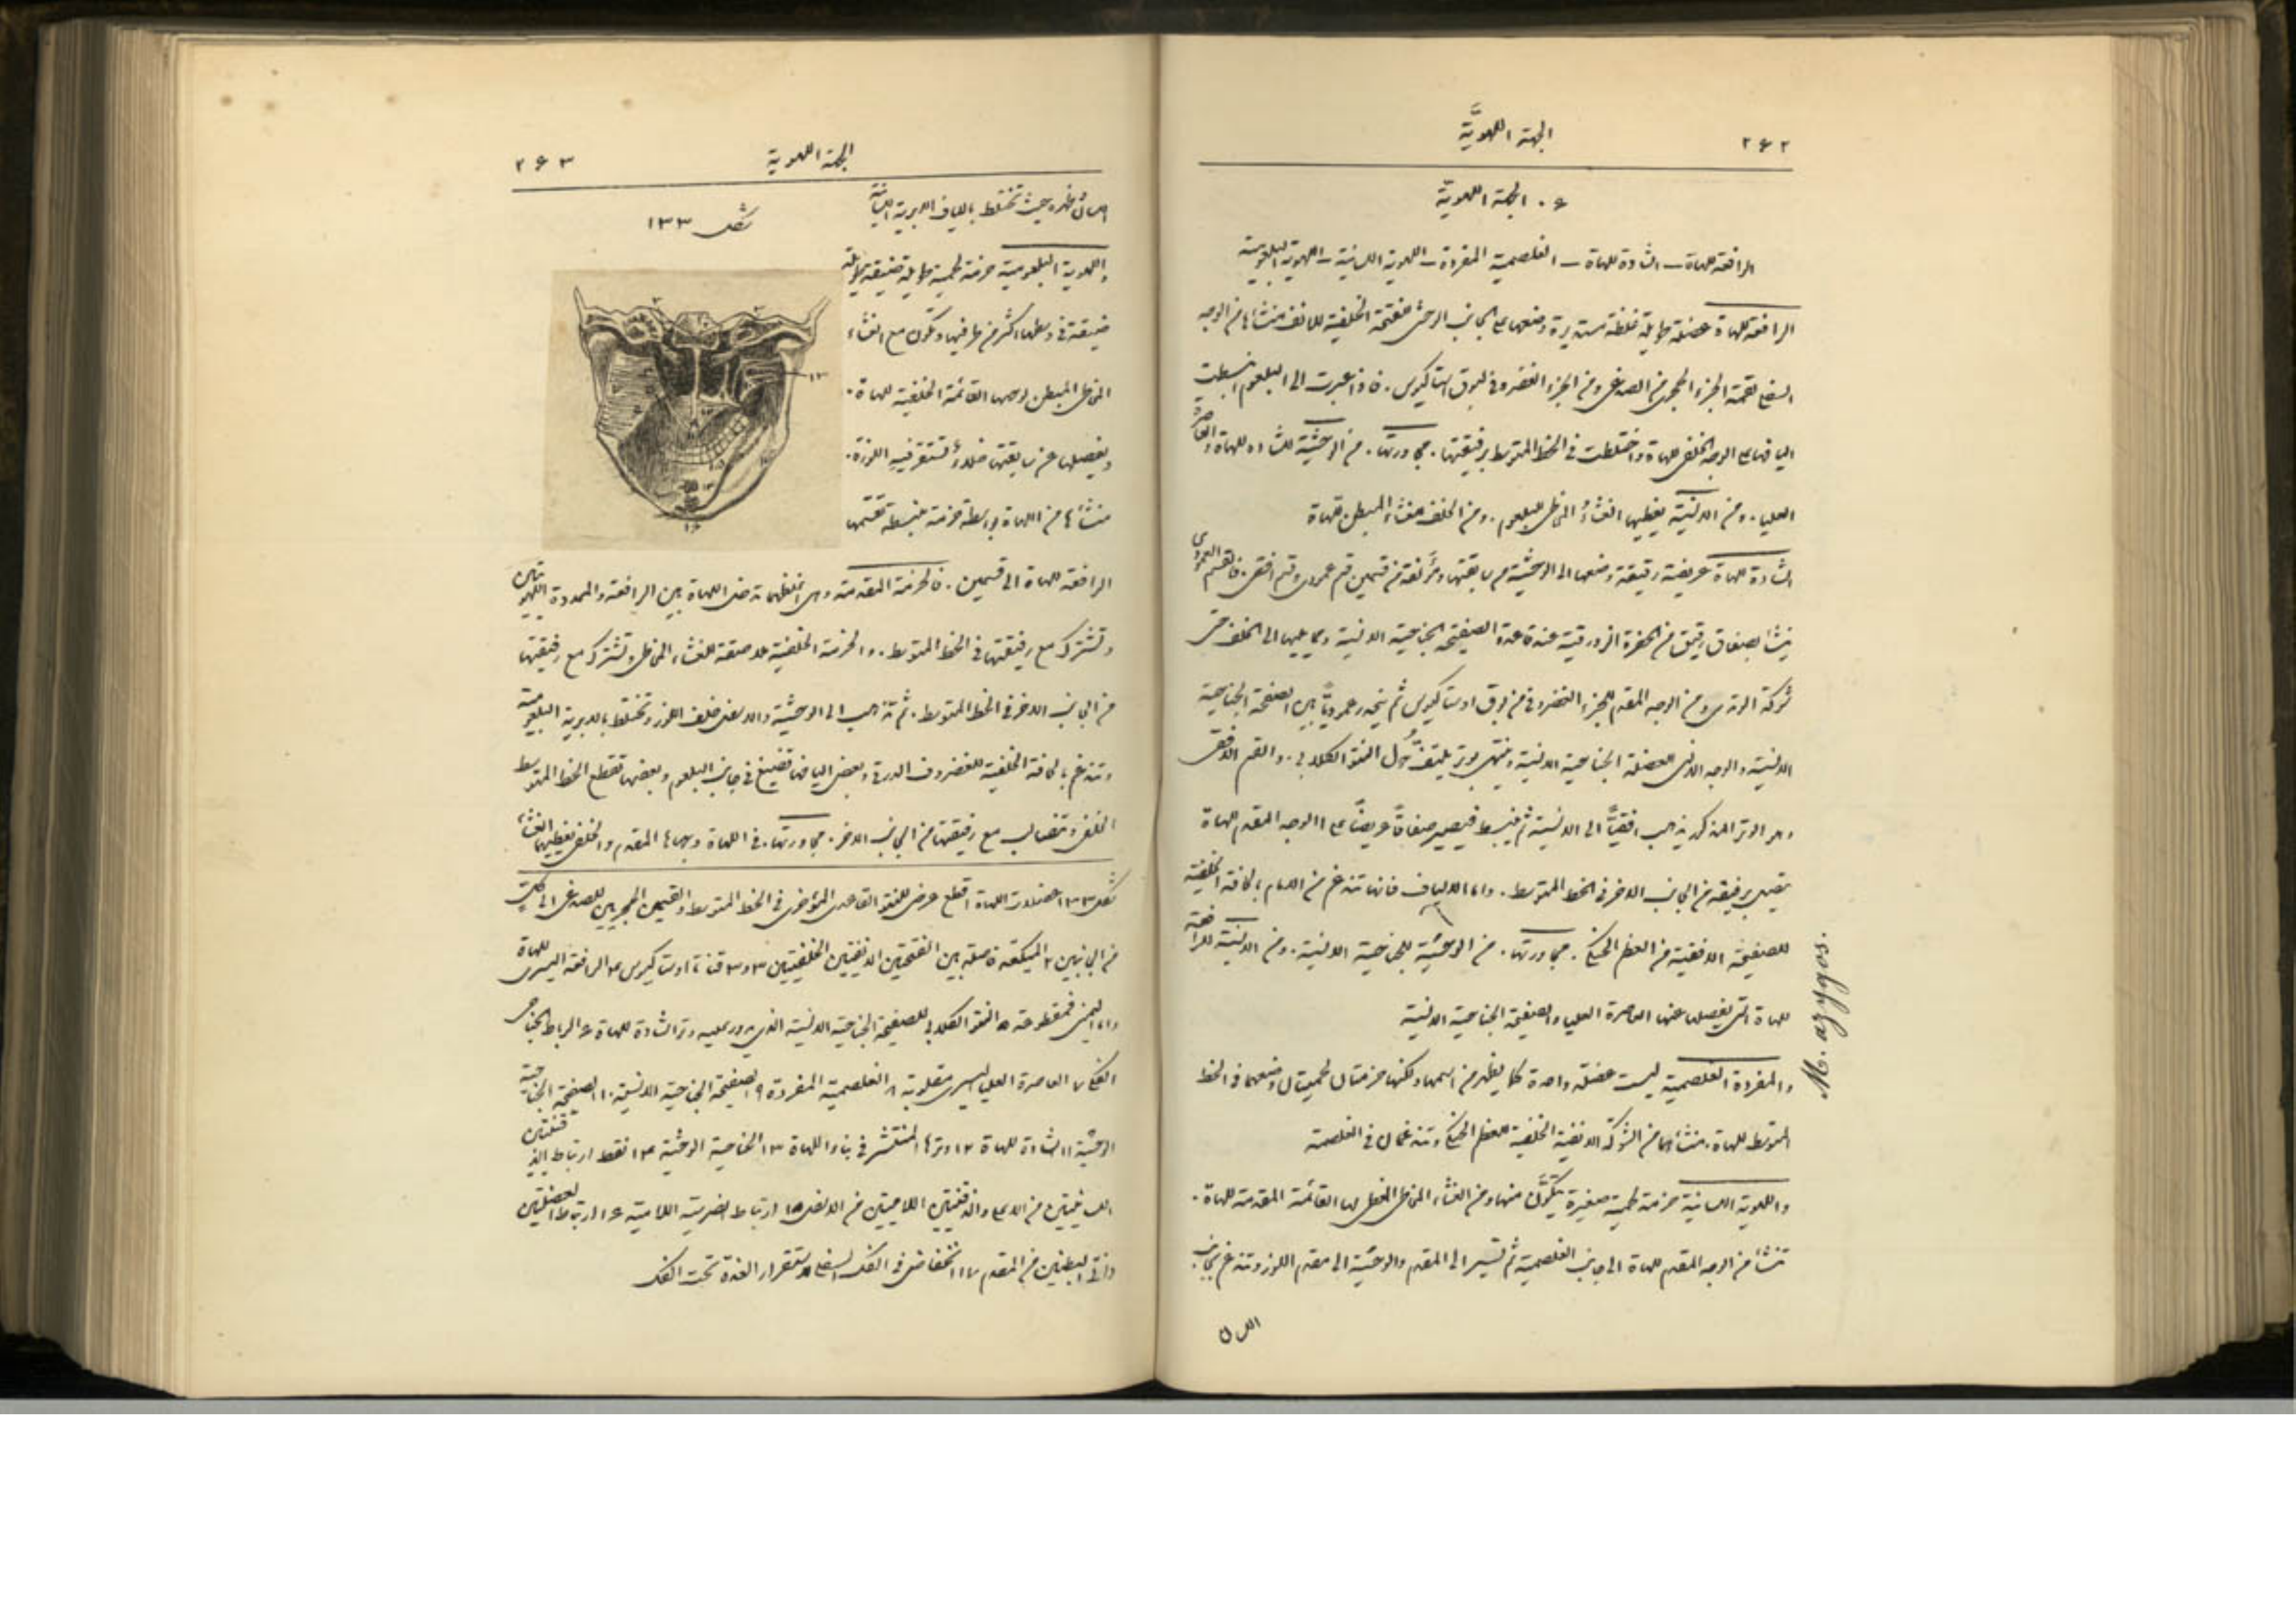 ٢٦٢
الجهة اللهويَّة
٦. الجهة اللهويّة
الرافعة للهاة – الشادة للهاة – الغلصمية المفردة – اللهوية اللسانية – اللهوية البلعومية
الرافعة للهاة عضلة طويلة غليظة مستديرة وضعها على الجانب الوحشي لفتحة الخلفية للانف منشأها من الوجه
السفلي لقمة الجزء الحجري من الصدغي ومن الجزء الغضروفي لبوق استاكيوس. فاذا عبرت الى البلعوم انبسطت
اليافها على الوجه الخلفي للهاة واختلطت في الخط المتوسط برفيقتها. مجاورتها. من الوحشيَّة للشادة للهاة والعاصرة
العليا. ومن الانسيَّة يغطيها الغشاءُ المخاطي للبلعوم. ومن الخلف الغشاء المبطن للهاة
الشادة للهاة عريضة رقيقة وضعها الى الوحشيَّة من سابقتها ومؤلفة من قسمين قسم عمودي وقسم افقي. فالقسم العمودي
ينشأ بصفاق رقيق من الحفرة الزورقية عند قاعدة الصفيحة الجناحية الانسية ومما يليها الى الخلف حتى
شوكة الوتدي ومن الوجه المقدم للجزء الغضروفي من بوق اوستاكيوس ثم ينحدر عموديَّاً بين الصفيحة الجناحية
الانسيَّة والوجه الانسي للعضلة الجناحية الانسية وينتهي بوتر يلتفُّ حول النتؤ الكلابي. والقسم الافقي
وهو الوتر المذكور يذهب افقيَّاً الى الانسية ثم ينبسط فيصير صفاقاً عريضاً على الوجه المقدم للهاة
يتصل برفيقه من الجانب الاخر في الخط المتوسط. واما الالياف فانها تندغم من الامام بالحافة الخلفية
للصفيحة الافقية من العظم الحنكي. مجاورتها. من الوحشيَّة للجناحية الانسية. ومن الانسيَّة للرافعة
للهاة التي يفصلها عنها العاصرة العليا والصفيحة الجناحية الانسية
والمفردة الغلصمية ليست عضلة واحدة كما يظهر من اسمها ولكنها حزمتان لحميتان وضعهما في الخط
المتوسط للهاة. منشأهما من الشوكة الانفية الخلفية للعظم الحنكي وتندغمان في الغلصمة
واللهوية اللسانية حزمة لحمية صغيرة يتكوَّن منها ومن الغشاء المخاطي المغطي لها القائمة المقدمة للهاة.
تنشأ من الوجه المقدم للهاة الى جانب الغلصمة ثم تسير الى المقدم والوحشيَّة الى مقدم اللوز وتندغم بجانب
اللسان
M. azygos.
الجهة اللهوية
٢٦٣
اللسان وظهره حيث تختلط بالياف الابرية اللسانية
شكل ١٣٣
واللهوية البلعومية حزمة لحمية طويلة ضيقة
ضيقة في وسطها اكثر من طرفيها وتكون مع الغشاء
المخاطي المبطن لوجهها القائمة الخلفية للهاة.
ويفصلها عن سابقتها خلاءٌ تستقر فيه اللوزة.
منشأها من اللهاة بواسطة حزمة منبسطة تقسمها
الرافعة للهاة الى قسمين. فالحزمة المقدمة وهي اغلظهما تدخل اللهاة بين الرافعة والممددة اللهويتين
وتشترك مع رفيقتها في الخط المتوسط. والحزمة الخلفية ملاصقة للغشاء المخاطي وتشترك مع رفيقتها
من الجانب الاخر في الخط المتوسط. ثم تذهب الى الوحشيَّة والاسفل خلف اللوز وتختلط بالابرية البلعومية
وتندغم بالحافة الخلفية للغضروف الدرقي وبعض اليافها تضيع في جانب البلعوم وبعضها تقطع الخط المتوسط
الخلفي وتتصالب مع رفيقتها من الجانب الاخر. مجاورتها. في اللهاة وجهاها المقدم والخلفي يغطيهما الغشاء
شكل ١٣٣ عضلات اللهاة ١ قطع عرضي للنتؤ القاعدي المؤخري في الخط المتوسط والقسمين الحجريين للصدغي
من الجانبين ٢ الميكعة فاصلة بين الفتحتين الانفيتين الخلفيتين ٣ و٣ قناتا اوستاكيوس ٤ الرافعة اليسرى للهاة
واما اليمنى فمقطوعة ٥ النتؤ الكلابي للصفيحة الجناحية الانسية الذي يدور عليه وتر الشادة للهاة ٦ الرباط الجناحي
الفكي ٧ العاصرة العليا اليسرى مقلوبة ٨ الغلصمية المفردة ٩ الصفيحة الجناحية الانسية ١٠ الصفيحة الجناحية
الوحشيَّة ١١ الشادة للهاة ١٢ وترها المنتشر في بناء اللهاة ١٣ الجناحية الوحشية ١٤ نقط ارتباط الذقنيتين
اللسانيتين من الاعلى والذقنيتين اللاميتين من الاسفل ١٥ ارتباط الضرسية اللامية ١٦ ارتباط العضلتين
ذاتي البطنين من المقدم ١٧ انخفاض في الفك السفلي لاستقرار الغدة تحت الفك